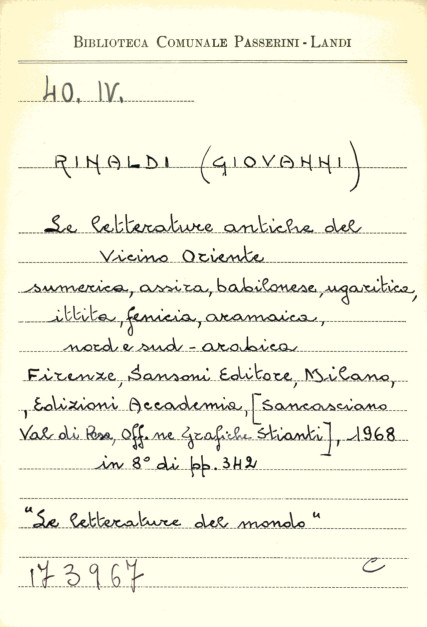 BIBLIOTECA COMUNALE PASSERINI - LANDI
40. IV.
RINALDI (GIOVANNI)
Le letterature antiche del
Vicino Oriente
sumerica, assira, babilonese, ugaritica,
ittita, fenicia, aramaica,
nord e sud - arabica
Firenze, Sansoni Editore, Milano,
, Edizioni Accademia, [Sancasciano
Val di Pesa, Off. ne Grafiche Stianti], 1968
in 8° di pp. 342
"Le letterature del mondo"
173967 C